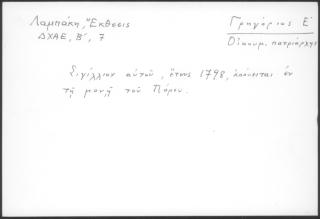 Λαμπάκη, "Εκθεσις
ΔΧΑΕ, Β΄, 7
Γρηγόριος Ε΄
Οἰκουμ. πατριάρχης
Σιγίλλιον αὐτοῦ, ἔτους 1798, ἐν
τῇ μονῇ τοῦ Πόρου.